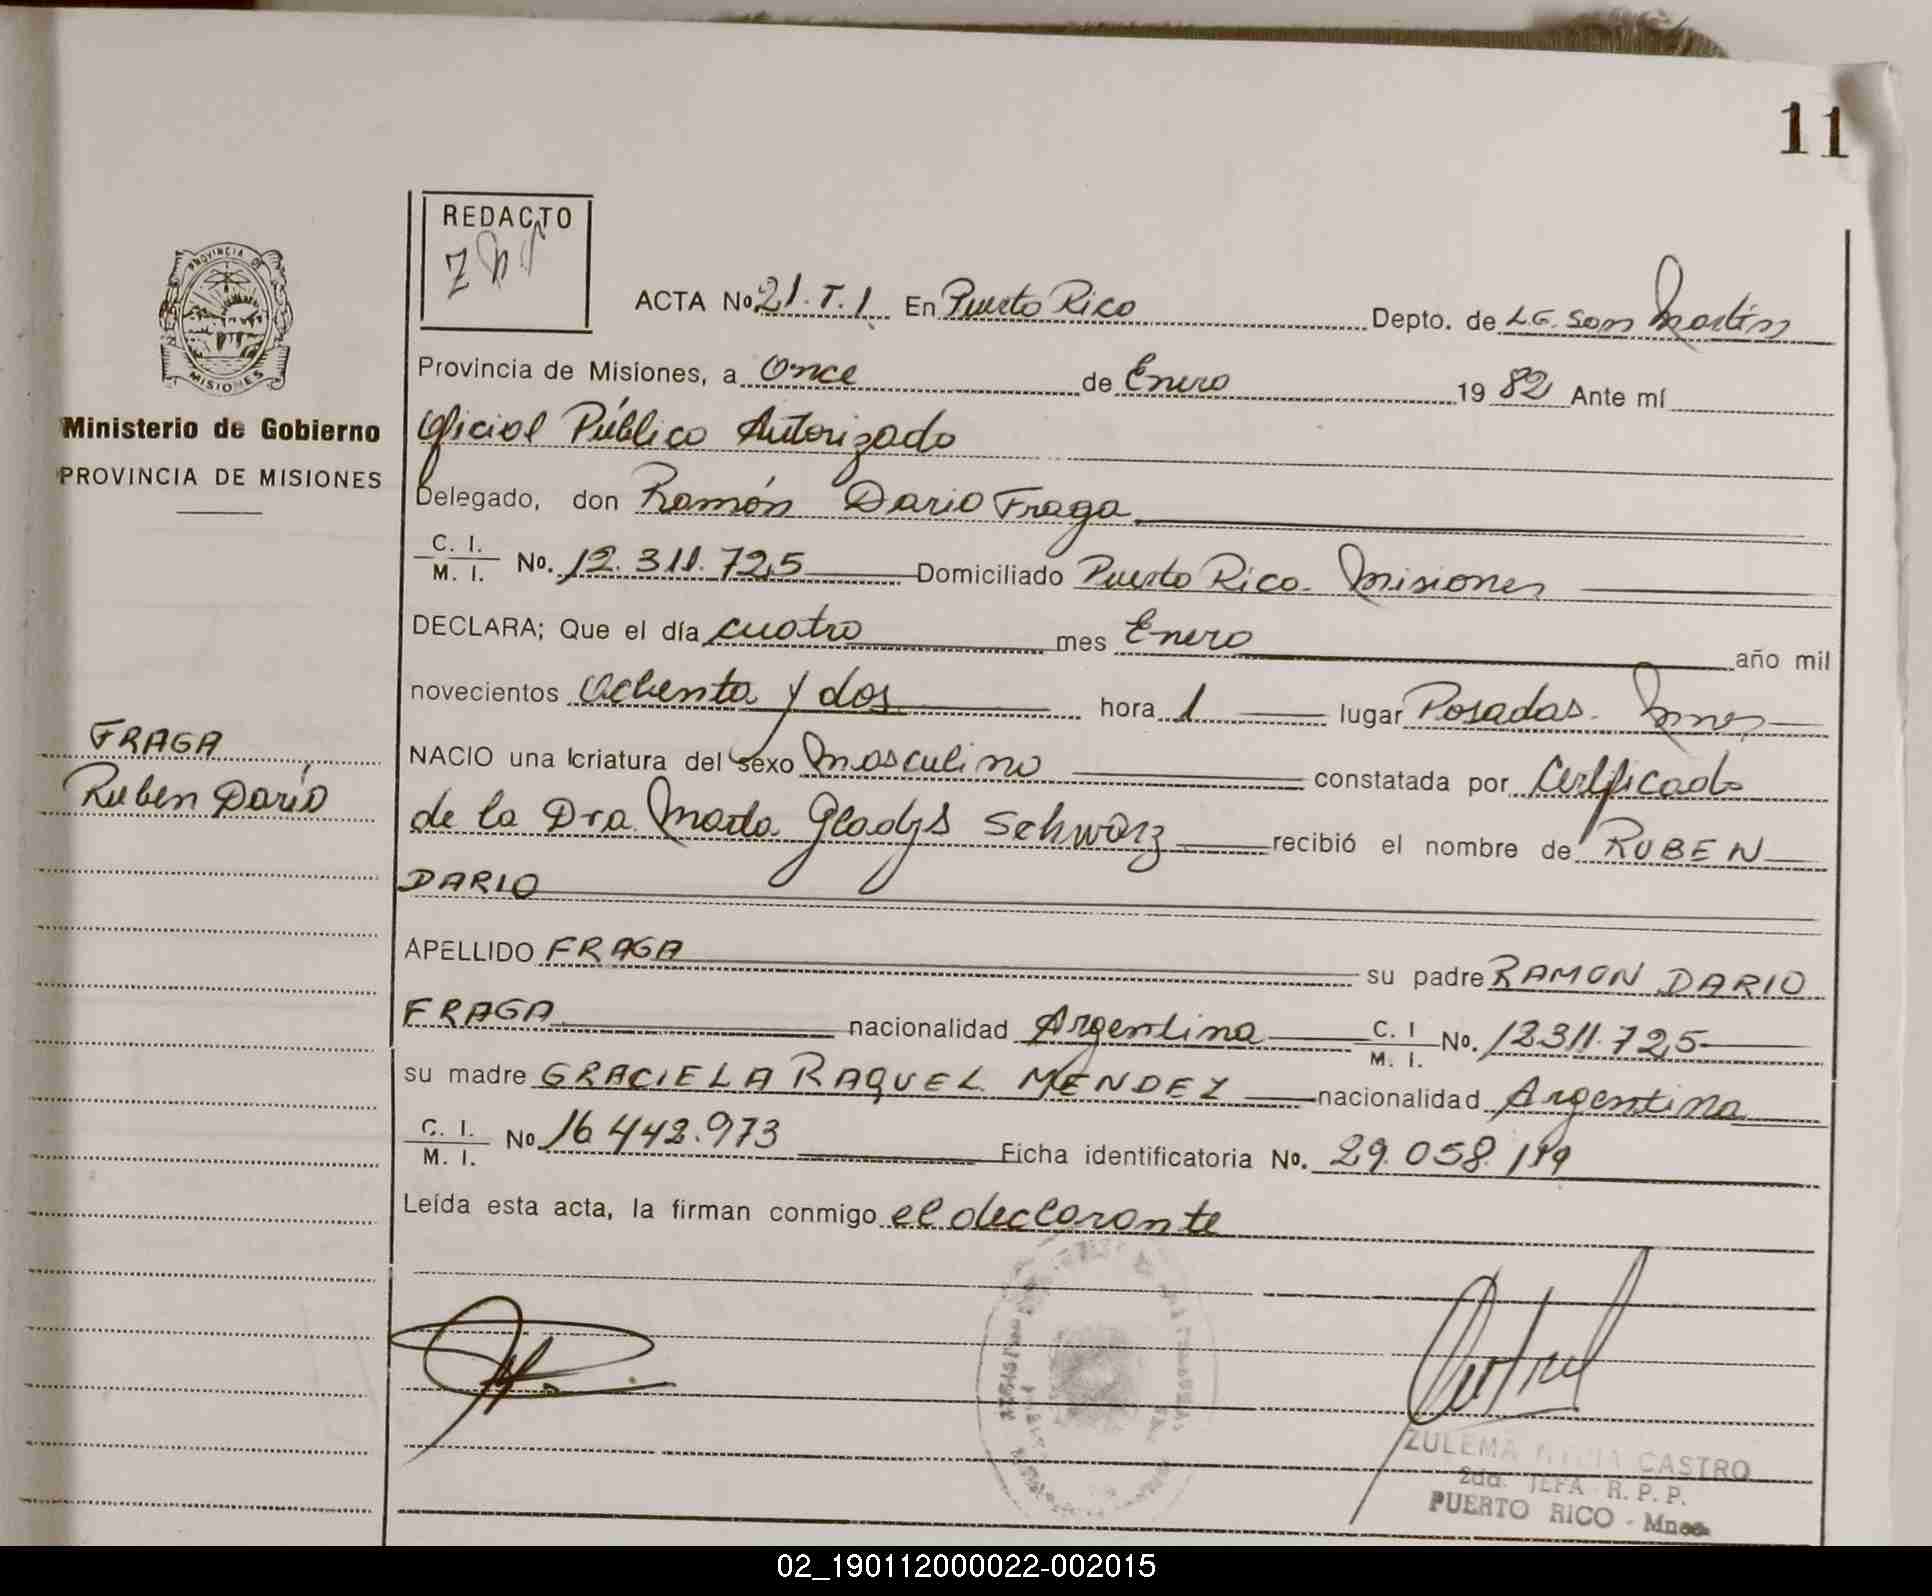 11
REDACTO
PROVINCIA DE
MISIONES
ACTA No 21. T. 1. En Puerto Rico Depto. de L.G. San Martin
Provincia de Misiones, a Once de Enero 19 82 Ante mí
Ministerio de Gobierno
PROVINCIA DE MISIONES
Oficial Público Autorizado
Delegado, don Ramón Dario Fraga
C. I.
M. I. No. 12.311.725 Domiciliado Puerto Rico. Misiones
DECLARA; Que el día cuatro mes Enero año mil
novecientos ochenta y dos hora 1 lugar Posadas. Mnes
FRAGA
Ruben Darío
NACIO una criatura del sexo masculino constatada por Certificado
de la Dra. Marta Gladys Schwarz recibió el nombre de RUBEN
DARIO
APELLIDO FRAGA su padre RAMON DARIO
FRAGA nacionalidad Argentina C. I M. I. No. 12311.725
su madre GRACIELA RAQUEL MENDEZ nacionalidad Argentina
C. I.
M. I. No 16.442.973 Ficha identificatoria No. 29.058.
Leída esta acta, la firman conmigo el declarante
ZULEMA CASTRO
2da. JEFA R. P. P.
PUERTO RICO - Mnes
02_190112000022-002015